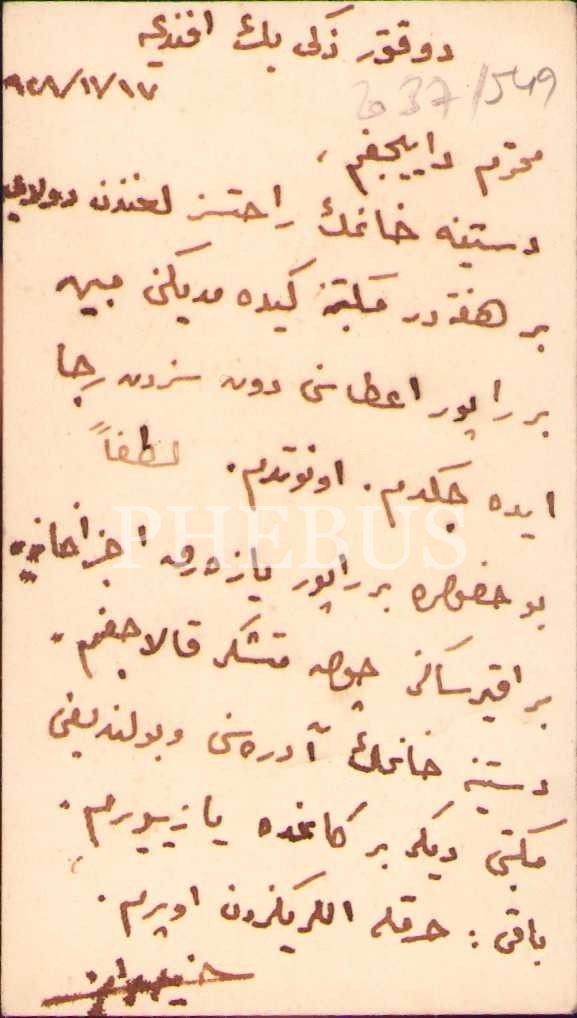 دوقتور ذكی بك افندی‌یه
2037/549
٩٢٨/١/١٧
محترم داییجغم،
دستینه خانمك راحتسزلغندن دولایی
بر هفته‌در مكتبه كیده‌مدیكنی مبین
بر راپور اعطاسنی دون سزدن رجا
ایده‌جكدم. اونوتدم. لطفاً
بو خصوصده بر راپور یازوب اجزاخانه‌یه
براقیرسه‌كز چوق متشكر قالاجغم.
دستینه خانمك آدره‌سنی و بولندیغی
مكتبی دیكر بر كاغده یازییورم.
باقی: حرمتله اللریكزدن اوپرم.
PHEBUS